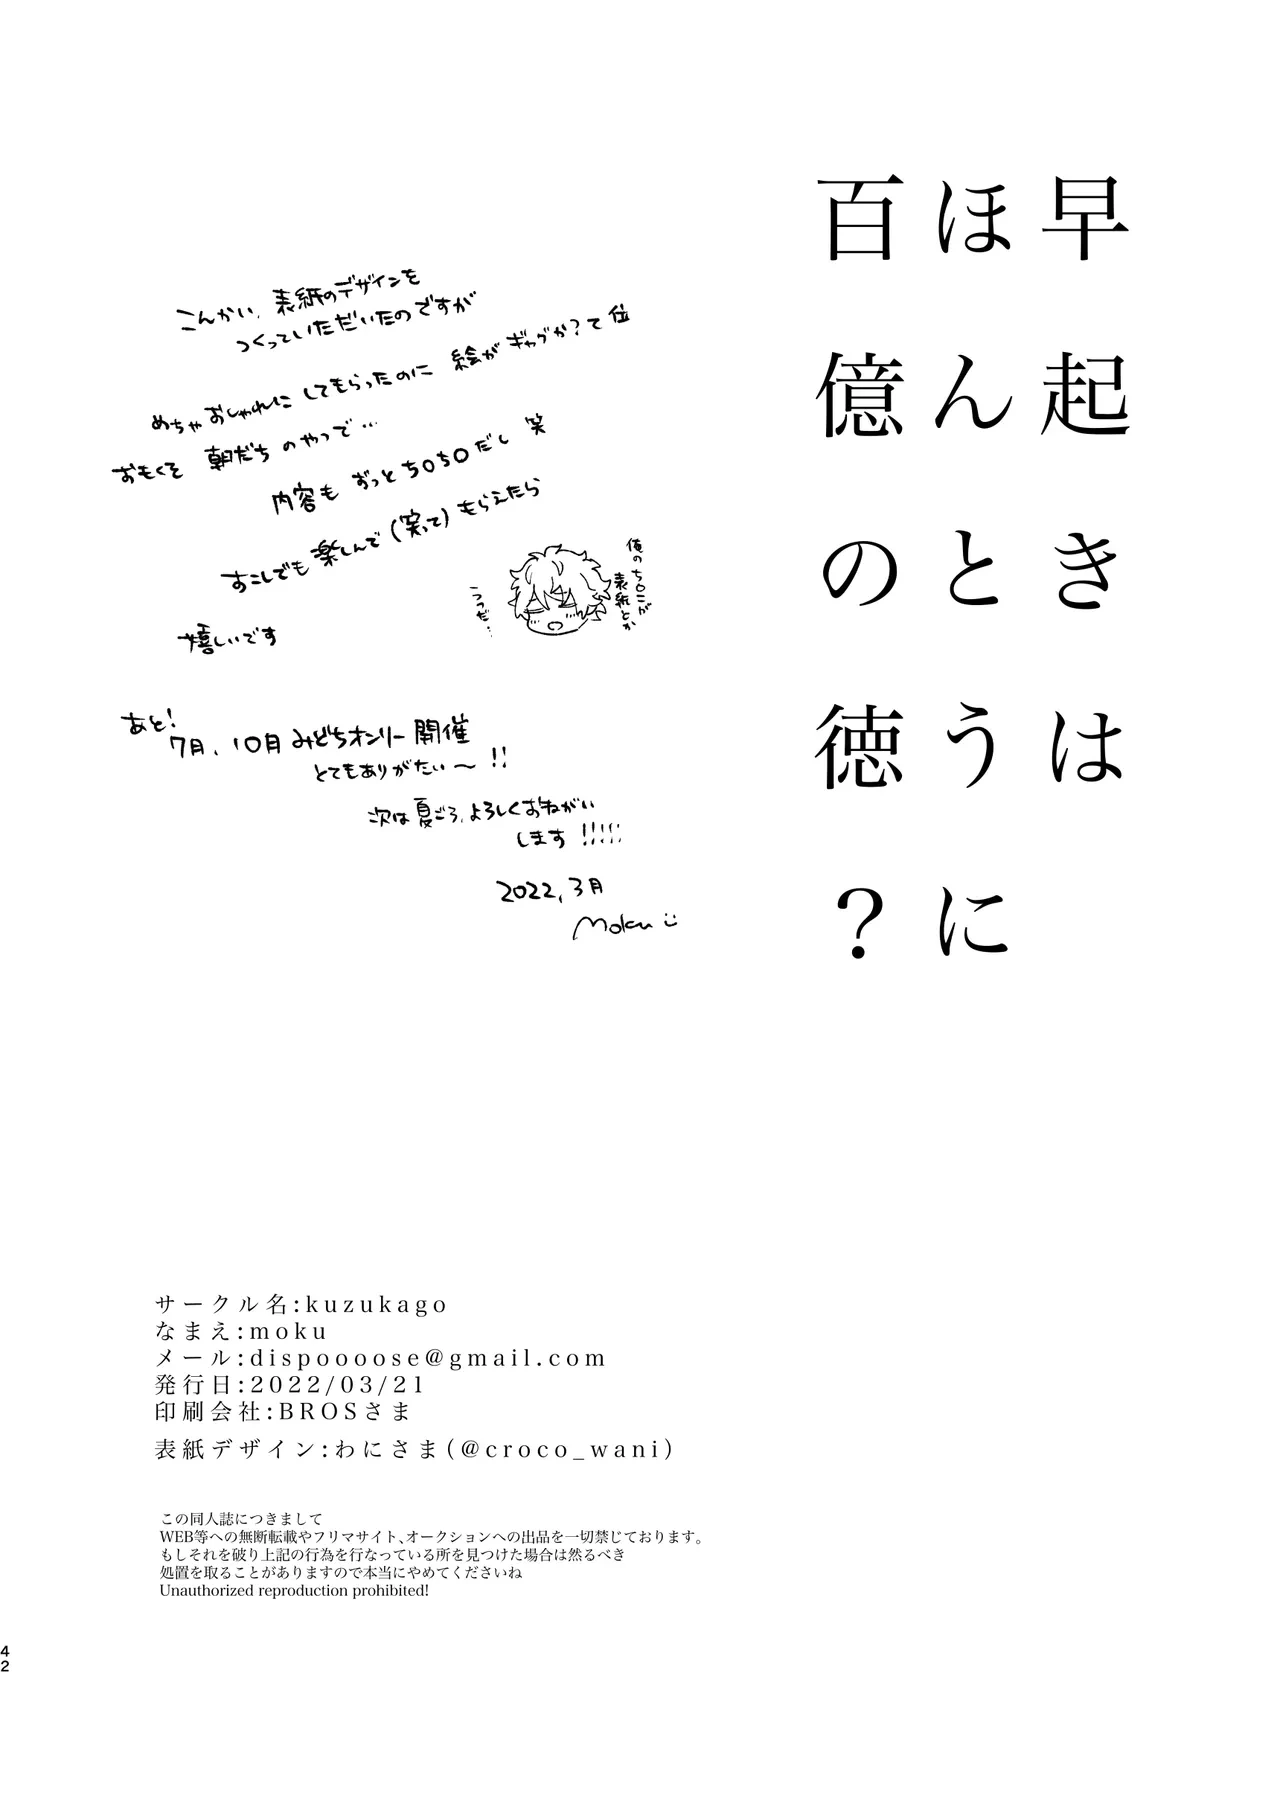 早起きは
ほんとうに
百億の徳？
こんかい、表紙のデザインを
つくっていただいたのですが
めちゃおしゃれにしてもらったのに 絵がギャグか？て位
おもくそ 朝だち のやつで…
内容も ずっとち〇ち〇だし 笑
すこしでも楽しんで(笑って)もらえたら
嬉しいです
俺のち〇こが
表紙とか
うつだ…
あと！
7月、10月 みどちオンリー開催
とてもありがたい〜!!
次は夏ごろ、よろしくおねがい
します!!!!!
2022,3月
Moku
サークル名:kuzukago
なまえ:moku
メール:dispoooose@gmail.com
発行日:2022/03/21
印刷会社:BROSさま
表紙デザイン:わにさま(@croco_wani)
この同人誌につきまして
WEB等への無断転載やフリマサイト、オークションへの出品を一切禁じております。
もしそれを破り上記の行為を行なっている所を見つけた場合は然るべき
処置を取ることがありますので本当にやめてくださいね
Unauthorized reproduction prohibited!
42